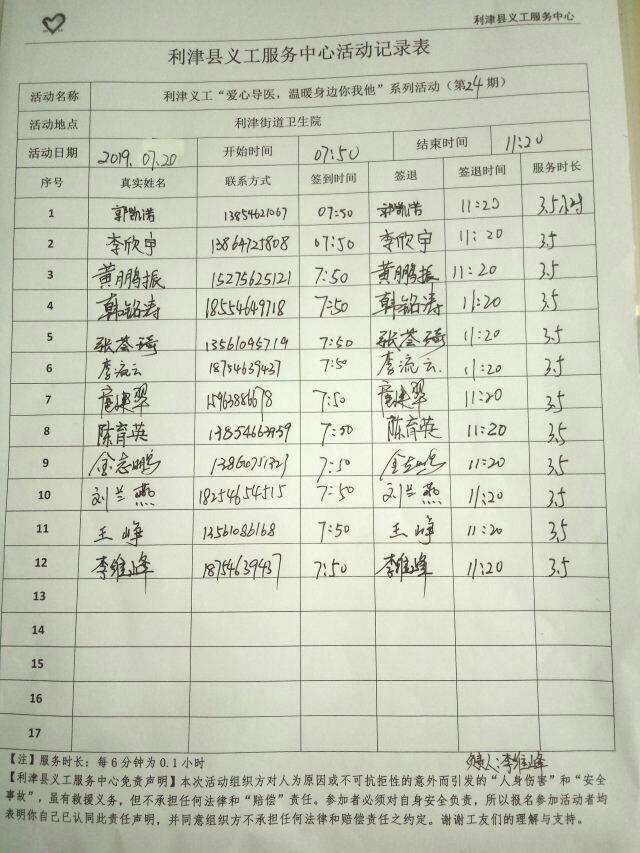 利津县义工服务中心
利津县义工服务中心活动记录表
活动名称 利津义工“爱心导医，温暖身边你我他”系列活动（第24期）
活动地点 利津街道卫生院
活动日期 2019.07.20 开始时间 07:50 结束时间 11:20
序号 真实姓名 联系方式 签到时间 签退 签退时间 服务时长
1 郭凯浩 13854621067 07:50 郭凯浩 11:20 3.5小时
2 李欣宇 13864725808 07:50 李欣宇 11:20 3.5
3 黄鹏振 15275625121 7:50 黄鹏振 11:20 3.5
4 韩铭涛 18554649718 7:50 韩铭涛 11:20 3.5
5 13561095719 7:50 11:20 3.5
6 李流云 18754639437 7:50 李流云 11:20 3.5
7 7:50 11:20 3.5
8 陈育英 7:50 陈育英 11:20 3.5
9 金志鹏 7:50 金志鹏 11:20 3.5
10 刘兰燕 18254654515 7:50 刘兰燕 11:20 3.5
11 王峥 13561086168 7:50 王峥 11:20 3.5
12 李维峰 18754639437 7:50 李维峰 11:20 3.5
13
14
15
16
17
【注】服务时长：每6分钟为0.1小时 负责人:李维峰
【利津县义工服务中心免责声明】本次活动组织方对人为原因或不可抗拒性的意外而引发的“人身伤害”和“安全
事故”，虽有救援义务，但不承担任何法律和“赔偿”责任。参加者必须对自身安全负责，所以报名参加活动者均
表明你自己已认同此责任声明，并同意组织方不承担任何法律和赔偿责任之约定。谢谢工友们的理解与支持。